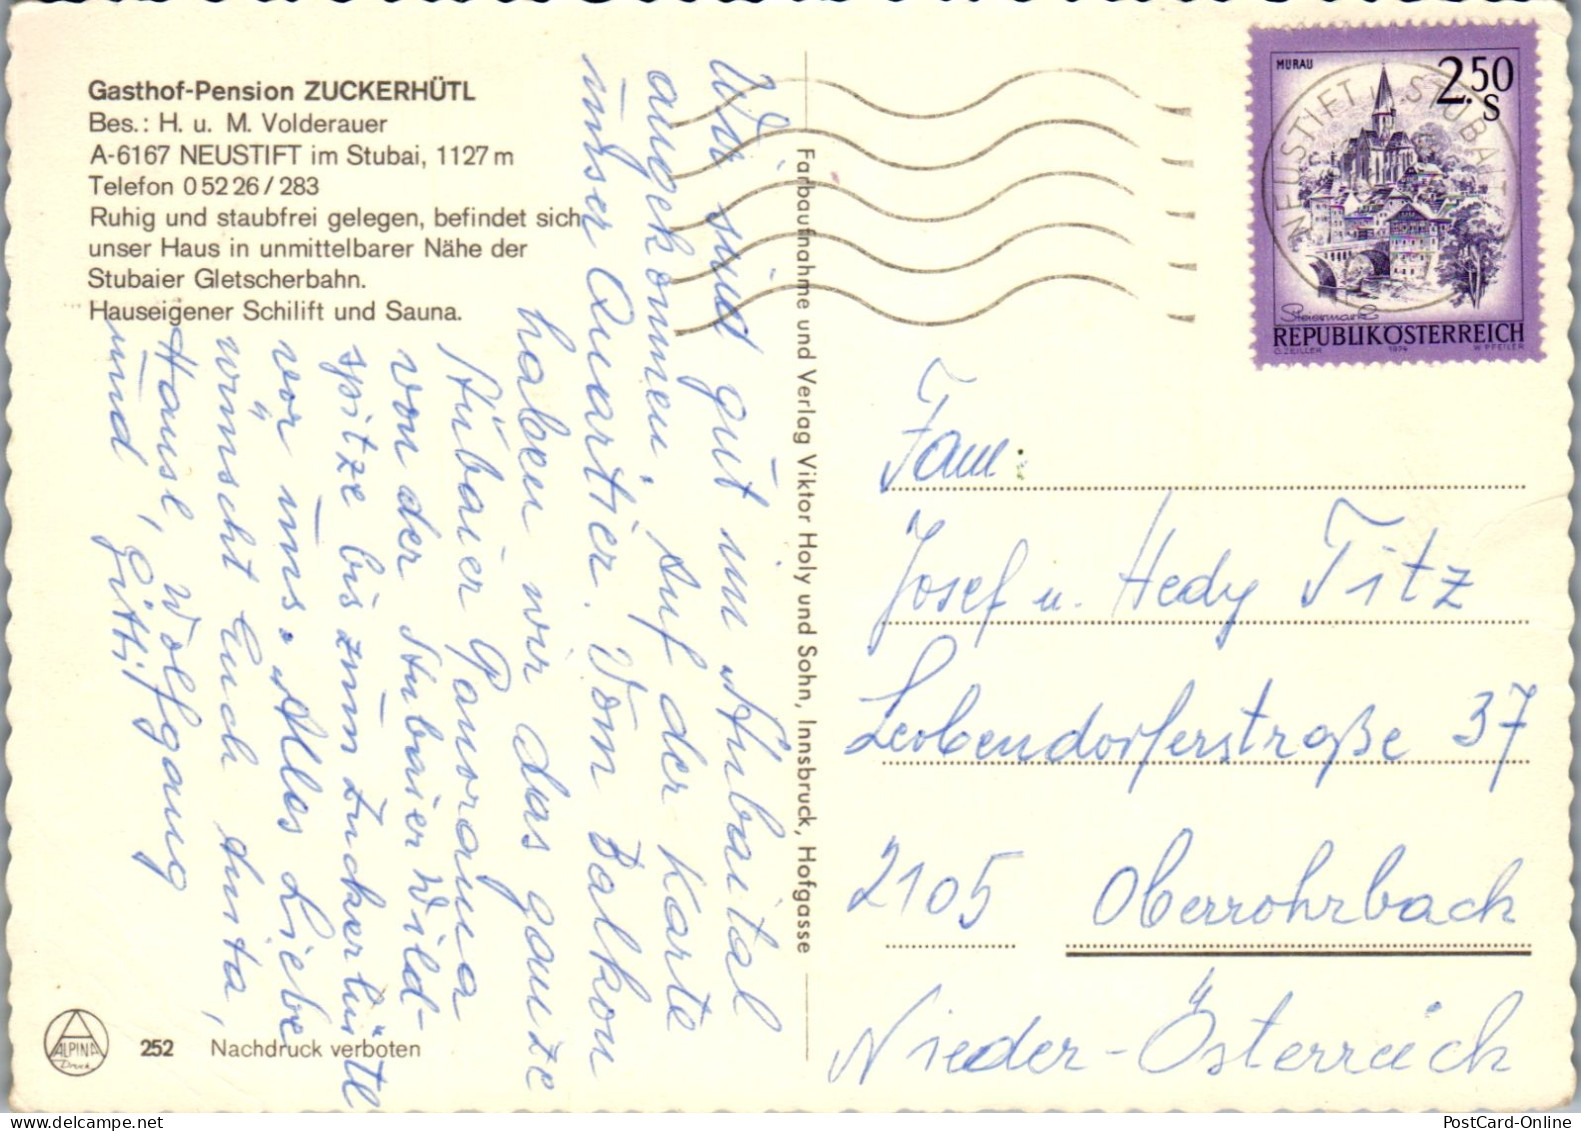 Gasthof-Pension ZUCKERHÜTL
Bes.: H. u. M. Volderauer
A-6167 NEUSTIFT im Stubai, 1127 m
Telefon 0 52 26 / 283
Ruhig und staubfrei gelegen, befindet sich
unser Haus in unmittelbarer Nähe der
Stubaier Gletscherbahn.
Hauseigener Schilift und Sauna.
Wir sind gut im Stubaital
angekommen. Auf der Karte
unser Quartier. Vom Balkon
haben wir das ganze
Stubaier Panorama
von der Stubaier Wild-
spitze bis zum Zuckerhütl
vor uns. Alles Liebe
wünscht Euch Anita,
Hansl, Wolfgang
und Gitti
252 Nachdruck verboten
ALPINA
Druck
Farbaufnahme und Verlag Viktor Holy und Sohn, Innsbruck, Hofgasse
MURAU
2.50
S
NEUSTIFT i. STUBAIT
Steiermark
REPUBLIK ÖSTERREICH
O. ZEILLER 1974 W. PFEILER
Fam.
Josef u. Hedy Titz
Leobendorferstraße 37
2105 Oberrohrbach
Nieder-Österreich
PostCard-Online